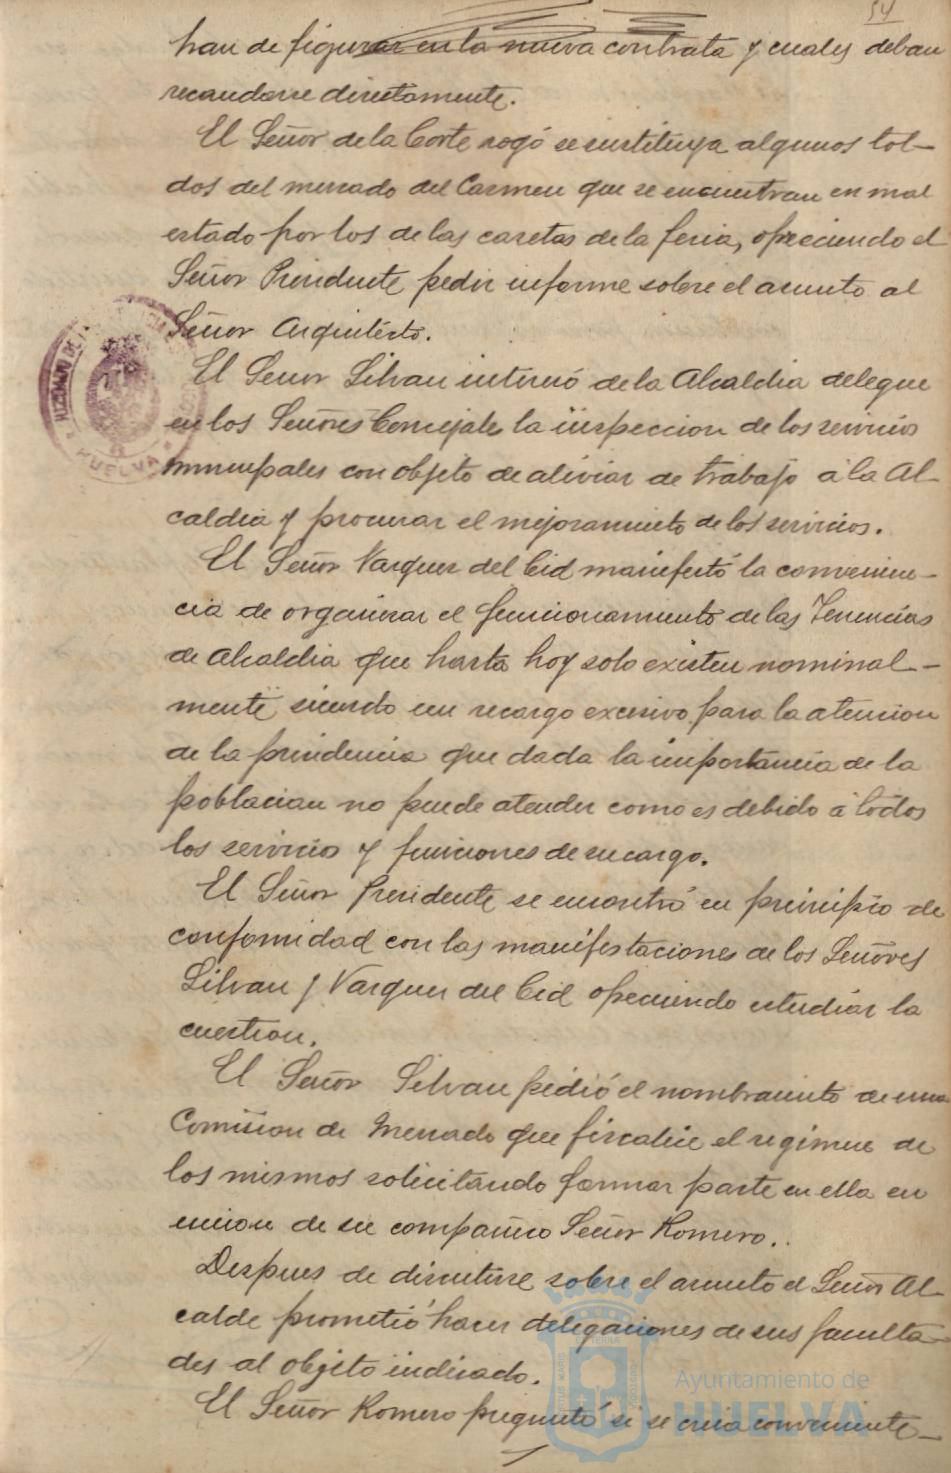 54
han de figurar en la nueva contrata y cuales deban
recaudarse directamente.
El Señor de la Corte rogó se sustituya algunos tol-
dos del mercado del Carmen que se encuentran en mal
estado por los de las casetas de la feria, ofreciendo el
Señor Presidente pedir informe sobre el asunto al
Señor Arquitecto.
El Señor Silvan interesó de la Alcaldia delegue
en los Señores Concejales la inspeccion de los servicios
municipales con objeto de aliviar de trabajo á la Al-
caldia y procurar el mejoramiento de los servicios.
El Señor Vazquez del Cid manifestó la convenien-
cia de organizar el funcionamiento de las Tenencias
de Alcaldia que hasta hoy solo existen nominal-
mente siendo un recargo excesivo para la atencion
de la presidencia que dada la importancia de la
poblacion no puede atender como es debido á todos
los servicios y funciones de su cargo.
El Señor Presidente se encontró en principio de
conformidad con las manifestaciones de los Señores
Silvan y Vazquez del Cid ofreciendo estudiar la
cuestion.
El Señor Silvan pidió el nombramiento de una
Comision de Mercado que fiscalice el regimen de
los mismos solicitando formar parte en ella en
union de su compañero Señor Romero.
Despues de discutirse sobre el asunto el Señor Al-
calde prometió hacer delegaciones de sus faculta-
des al objeto indicado.
El Señor Romero preguntó si se creia conveniente-
HUELVA
Ayuntamiento de
HUELVA